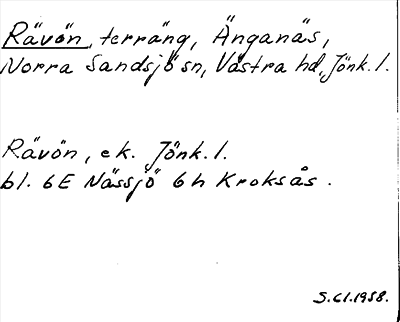 Rävön, terräng, Änganäs,
Norra Sandsjö sn, Västra hd, Jönk. l.
Rävön, ek. Jönk. l.
bl. 6E Nässjö 6h Kroksås.
S.Cl.1958.